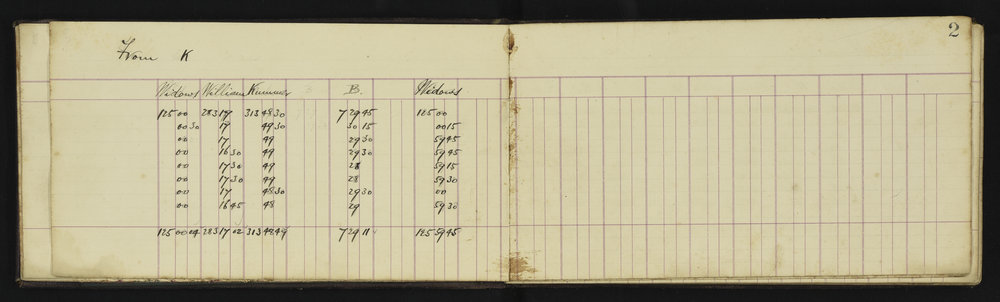 2
From K
Widows William Kummer B. Widows
125 00 283 17 313 48 30 7 29 45 125 00
00 30 17 49 30 30 15 00 15
00 17 49 29 30 59 45
00 16 30 49 29 30 59 45
00 17 30 49 28 59 15
00 17 30 49 28 59 30
00 17 48 30 29 30 00
00 16 45 48 29 59 30
125 00 04 283 17 02 313 48 49 7 29 11 125 59 45